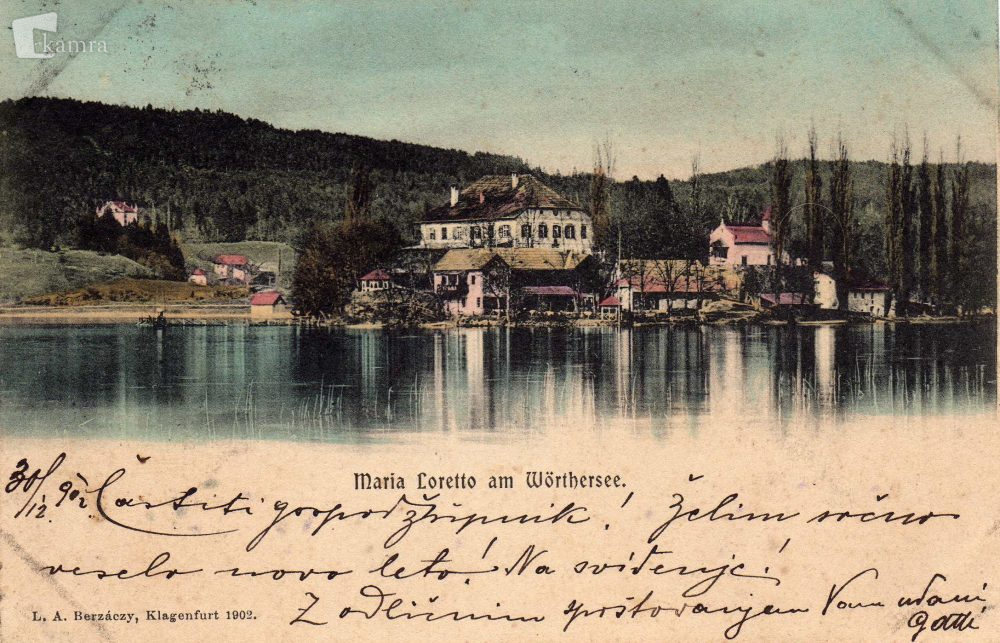 kamra
Maria Loretto am Wörthersee.
30/12. 902 Častiti gospod župnik! Želim srčno
veselo novo leto! Na svidenje!
Z odličnim spoštovanjem Vam udani
L. A. Berzáczy, Klagenfurt 1902.